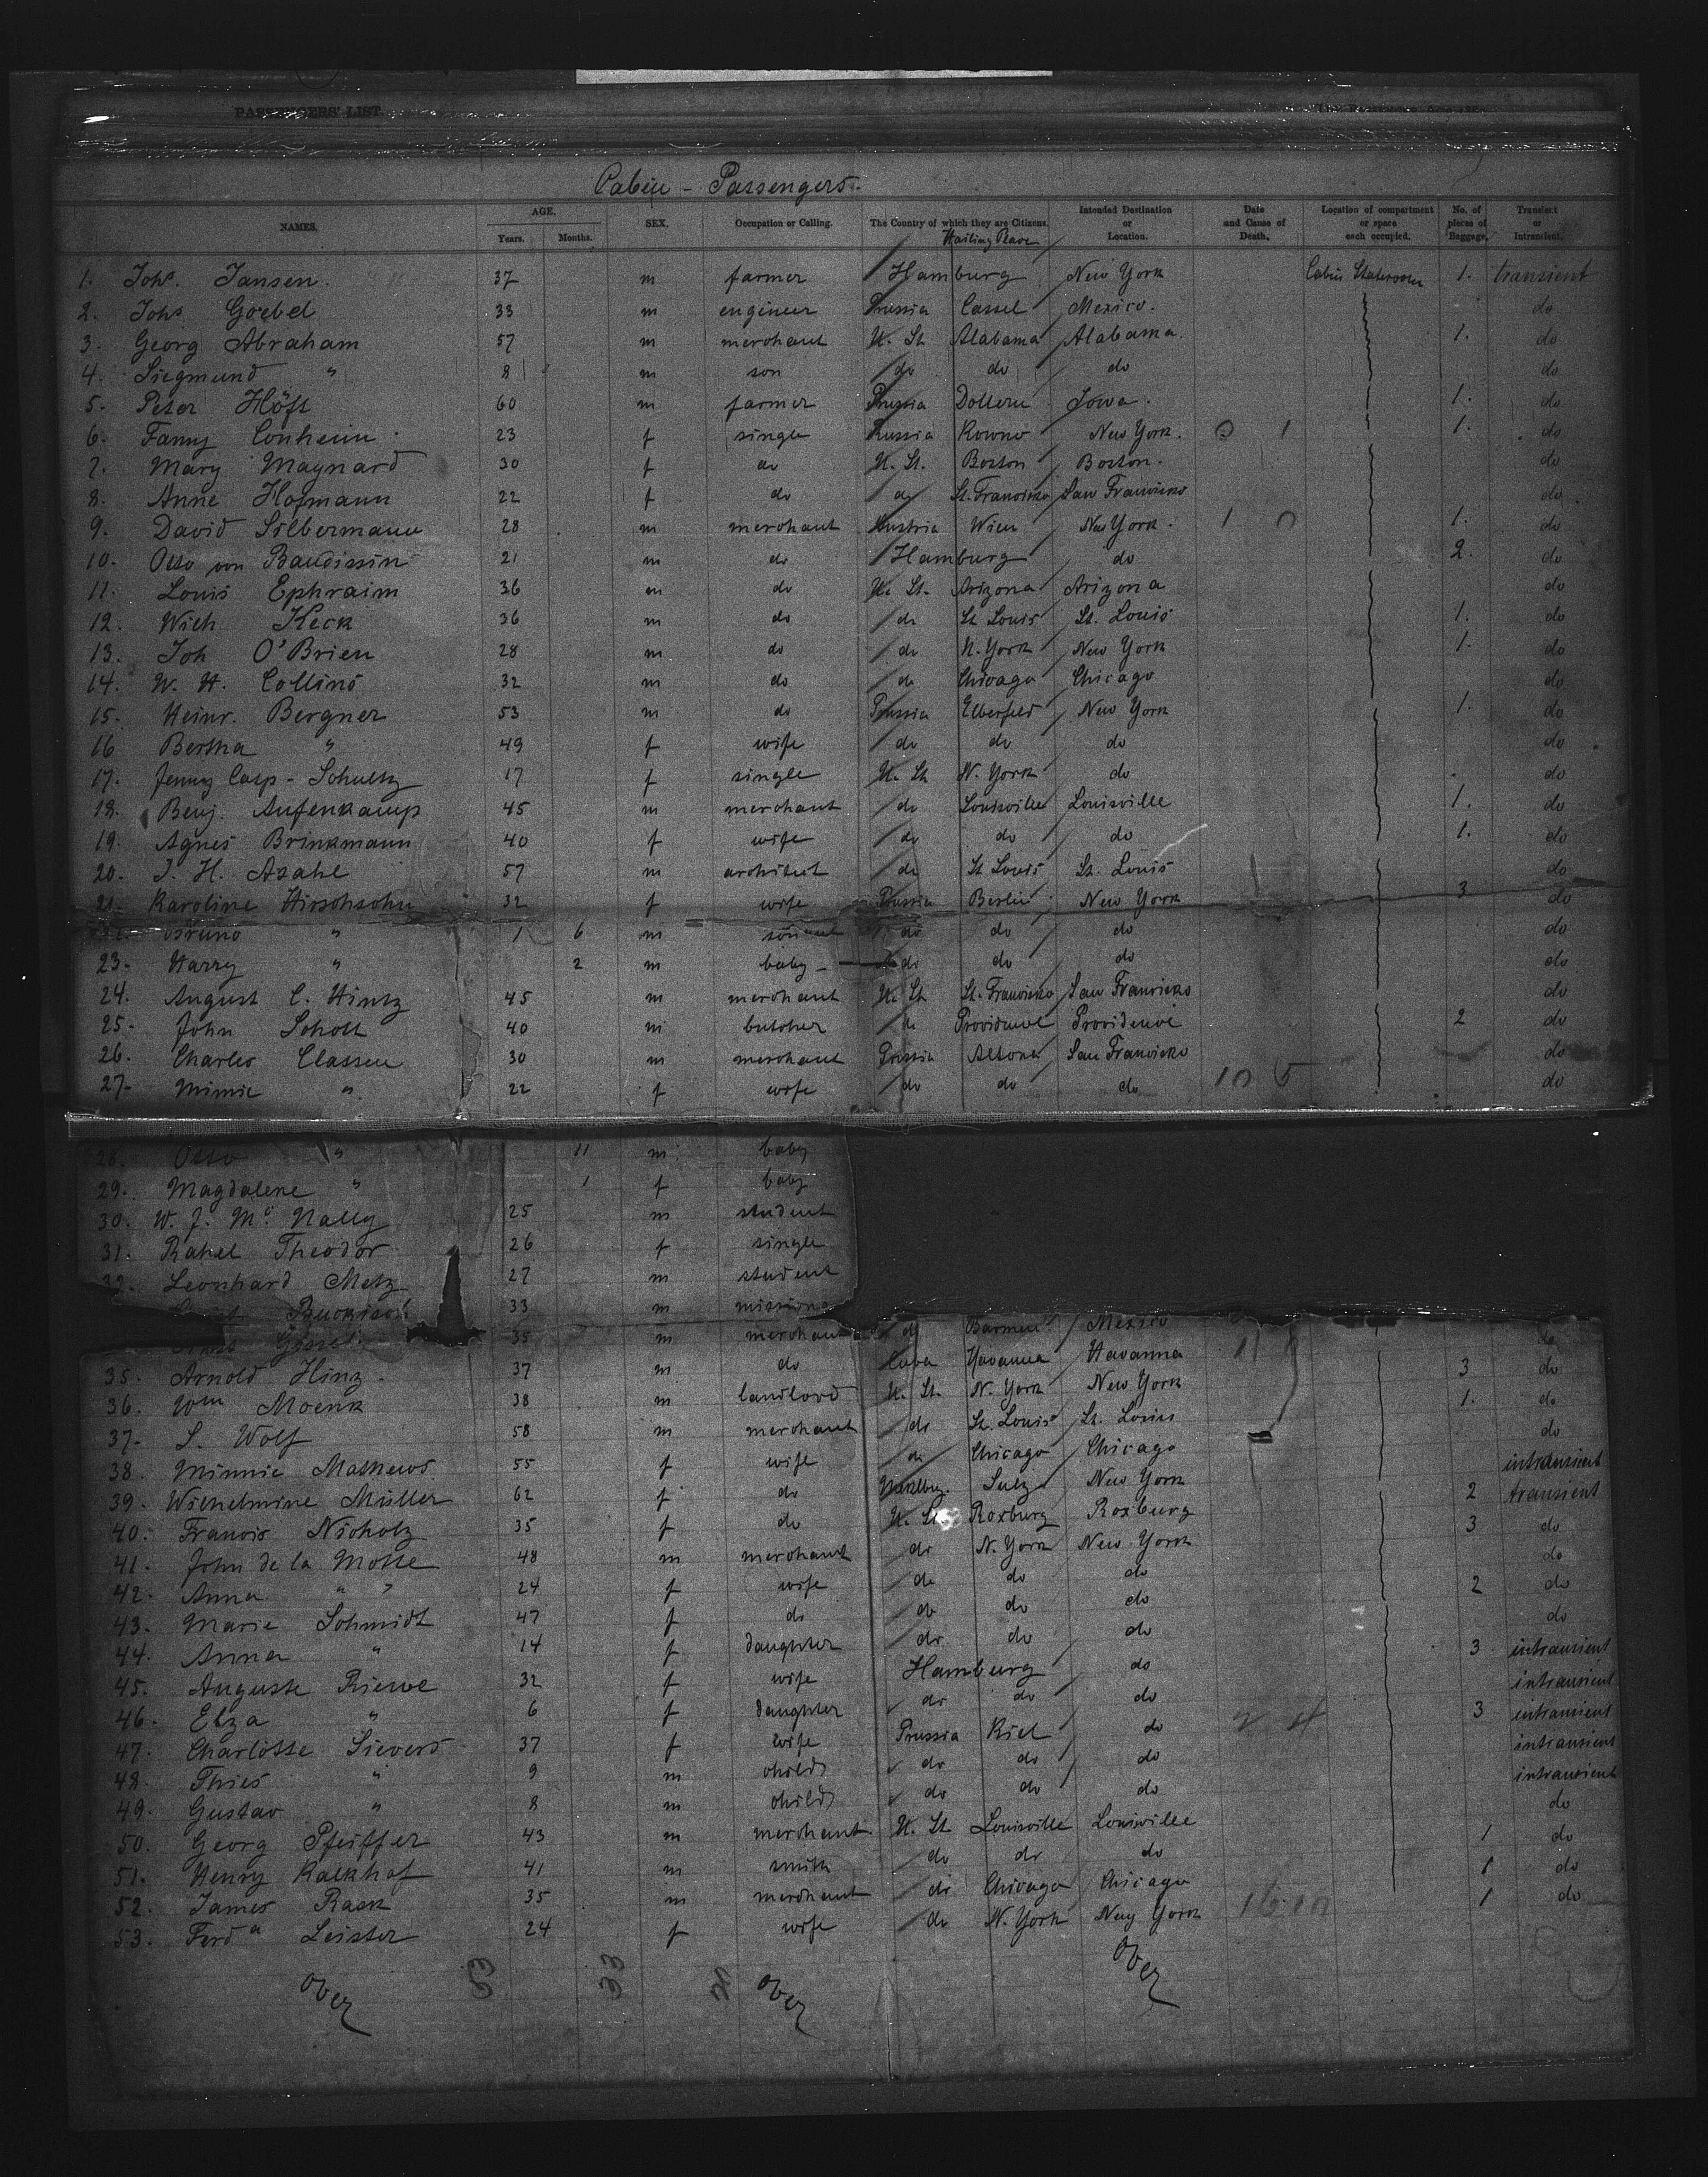 PASSENGERS' LIST.
Cabin - Passengers.
NAMES. AGE. Years. Months. SEX. Occupation or Calling. The Country of which they are Citizens. Intended Destination or Location. Date and Cause of Death. Location of compartment or space each occupied. No. of pieces of Baggage. Transient or Intransient.
1. Johs. Jansen. 37 m farmer Hamburg New York Cabin Stateroom 1. transient
2. Johs Goebel 33 m engineer Prussia Cassel Mexico. do
3. Georg Abraham 57 m merchant U. St. Alabama Alabama. 1. do
4. Siegmund " 8 m son do do do do
5. Peter Höft 60 m farmer Prussia Dollern Iowa. 1. do
6. Fanny Conheim 23 f single Russia Kowno New York. 0 1 1. do
7. Mary Maynard 30 f do U. St. Boston Boston. do
8. Anne Hofmann 22 f do do St. Francisko San Francisko do
9. David Silbermann 28 m merchant Austria Wien New York. 1 0 1. do
10. Otto von Baudissin 21 m do Hamburg do 2. do
11. Louis Ephraim 36 m do U. St. Arizona Arizona do
12. Wilh. Keck 36 m do do St Louis St. Louis 1. do
13. Joh O'Brien 28 m do do N. York New York 1. do
14. W. H. Collins 32 m do do Chicago Chicago do
15. Heinr. Bergner 53 m do Prussia Elberfeld New York 1. do
16 Bertha " 49 f wife do do do do
17. Jenny Casp-Schultz 17 f single U. St N. York do do
18. Benj. Aufenkamp 45 m merchant do Louisville Louisville 1. do
19. Agnes Brinkmann 40 f wife do do do 1. do
20. J. H. Azahl 57 m architect do St Louis St. Louis do
21. Karoline Hirschsohn 32 f wife Prussia Berlin New York 3 do
22. Bruno " 1 6 m son do do do do
23. Harry " 2 m baby do do do do
24. August C. Hintz 45 m merchant U. St St. Francisko San Francisko do
25. John Scholl 40 m butcher do Providence Providence 2 do
26. Charles Classen 30 m merchant Prussia Altona San Francisko do
27. Minnie " 22 f wife do do do 10 5 do
28. Otto " 11 m baby
29. Magdalene " 1 f baby
30. W. J. Mc. Nally 25 m student
31. Rahel Theodor 26 f single
32. Leonhard Metz 27 m student
33 m
35 m merchant do Barmen Mexico do
35. Arnold Hinz 37 m do Cuba Havanna Havanna 3 do
36. Wm Moenk 38 m landlord U. St. N. York New York 1. do
37. S. Wolf 58 m merchant do St. Louis St. Louis do
38. Minnie Mathews 55 f wife do Chicago Chicago intransient
39. Wilhelmine Müller 62 f do Sulz New York 2 transient
40. Francis Nicholz 35 f do U. St Roxburg Roxburg 3 do
41. John de la Motte 48 m merchant do N. York New York do
42. Anna " " 24 f wife do do do 2 do
43. Marie Schmidt 47 f do do do do do
44. Anna " 14 f daughter do do do 3 intransient
45. Auguste Riewe 32 f wife Hamburg do intransient
46. Elza " 6 f daughter do do do 3 intransient
47. Charlotte Sievers 37 f wife Prussia Kiel do 2 4 intransient
48. Thies " 9 m child do do do intransient
49. Gustav " 8 m child do do do do
50. Georg Pfeiffer 43 m merchant U. St Louisville Louisville 1 do
51. Henry Kalkhof 41 m smith do do do 1 do
52. James Rask 35 m merchant do Chicago Chicago 1 do
53. Ferda Leister 24 f wife do N. York New York 16 10
over over over